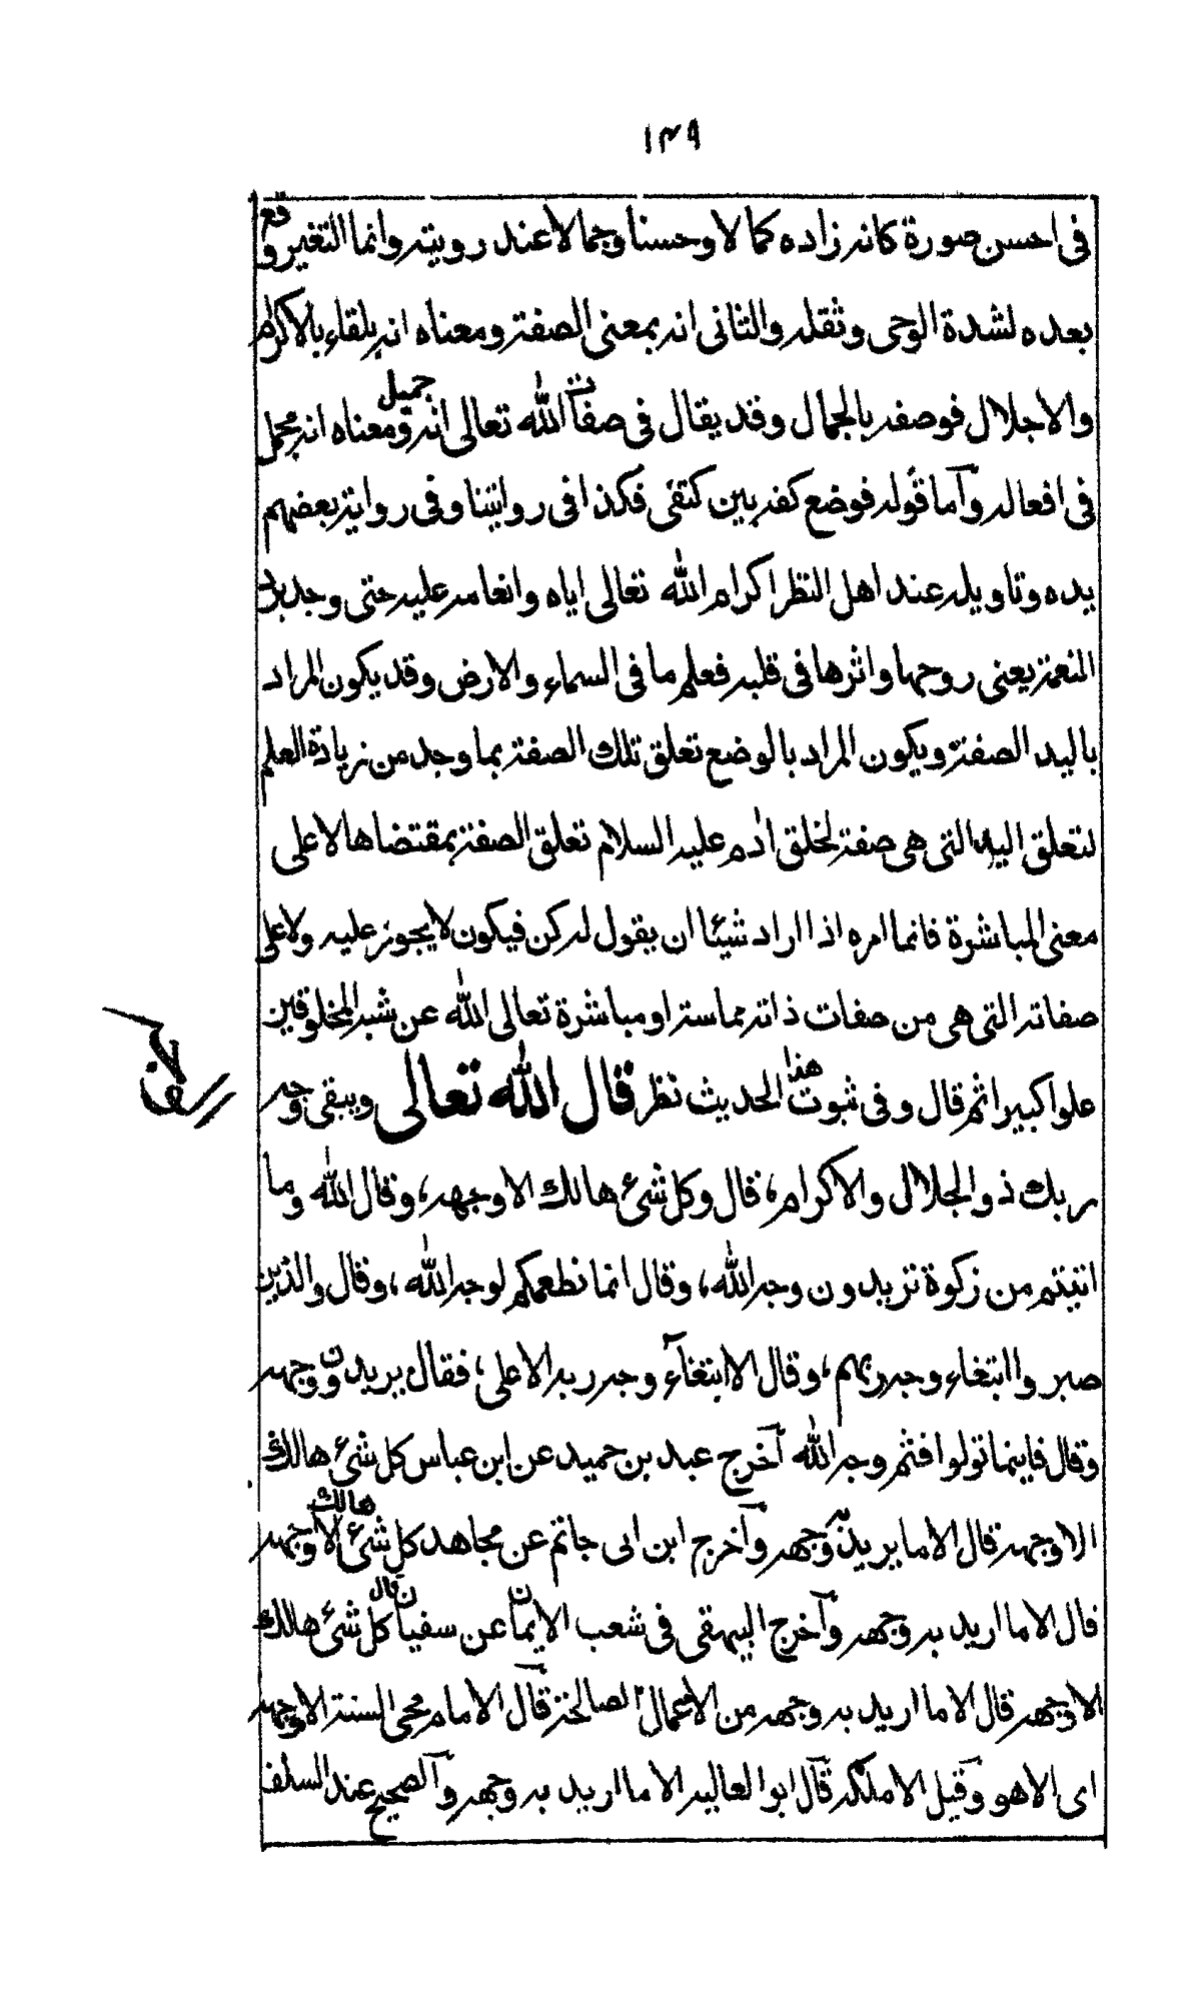 ١٣٩
فى احسن صورة كانه زاده كمالا وحسنا وجمالا عند رويته وانما التغير وقع
بعده لشدة الوحى وثقله والثانى انه بمعنى الصفة ومعناه انه يلقاه بالاكرام
والاجلال فوصفه بالجمال وقد يقال فى صفات الله تعالى انه جميل ومعناه انه مجمل
فى افعاله وآما قوله فوضع كفه بين كتفى فكذا فى روايتنا وفى رواية بعضهم
يده وتاويله عند اهل النظر اكرام الله تعالى اياه وانعامه عليه حتى وجد برد
النعمة يعنى روحها واثرها فى قلبه فعلم ما فى السماء والارض وقد يكون المراد
باليد الصفة ويكون المراد بالوضع تعلق تلك الصفة بما وجد من زيادة العلم
لتعلق اليد التى هى صفة لخلق ادم عليه السلام تعلق الصفة بمقتضاها لا على
معنى المباشرة فانما امره اذا اراد شيئا ان يقول له كن فيكون لا يجوز عليه ولا على
صفاته التى هى من صفات ذاته مماسة او مباشرة تعالى الله عن شبه المخلوقين
علوا كبيرا ثم قال وفى ثبوت هذا الحديث نظر قال الله تعالى ويبقى وجه
ربك ذو الجلال والاكرام، قال وكل شئ هالك الا وجهه، وقال الله وما
اتيتم من زكوة تريدون وجه الله، وقال انما نطعمكم لوجه الله، وقال والذين
صبروا ابتغاء وجه ربهم، وقال الا ابتغآء وجه ربه الاعلى، فقال يريدون وجهه
وقال فاينما تولوا فثم وجه الله آخرج عبد بن حميد عن ابن عباس كل شئ هالك
الا وجهه قال الا ما يريد به وجهه وآخرج ابن ابى حاتم عن مجاهد كل شئ هالك الا وجهه
قال الا ما اريد به وجهه وآخرج البيهقى فى شعب الايمان عن سفيان قال كل شئ هالك
الا وجهه قال الا ما اريد به وجهه من الاعمال الصالحة قآل الامام محى السنة الا وجهه
اى الا هو وقيل الا ملكه قآل ابو العاليه الا ما اريد به وجهه وآلصحيح عند السلف